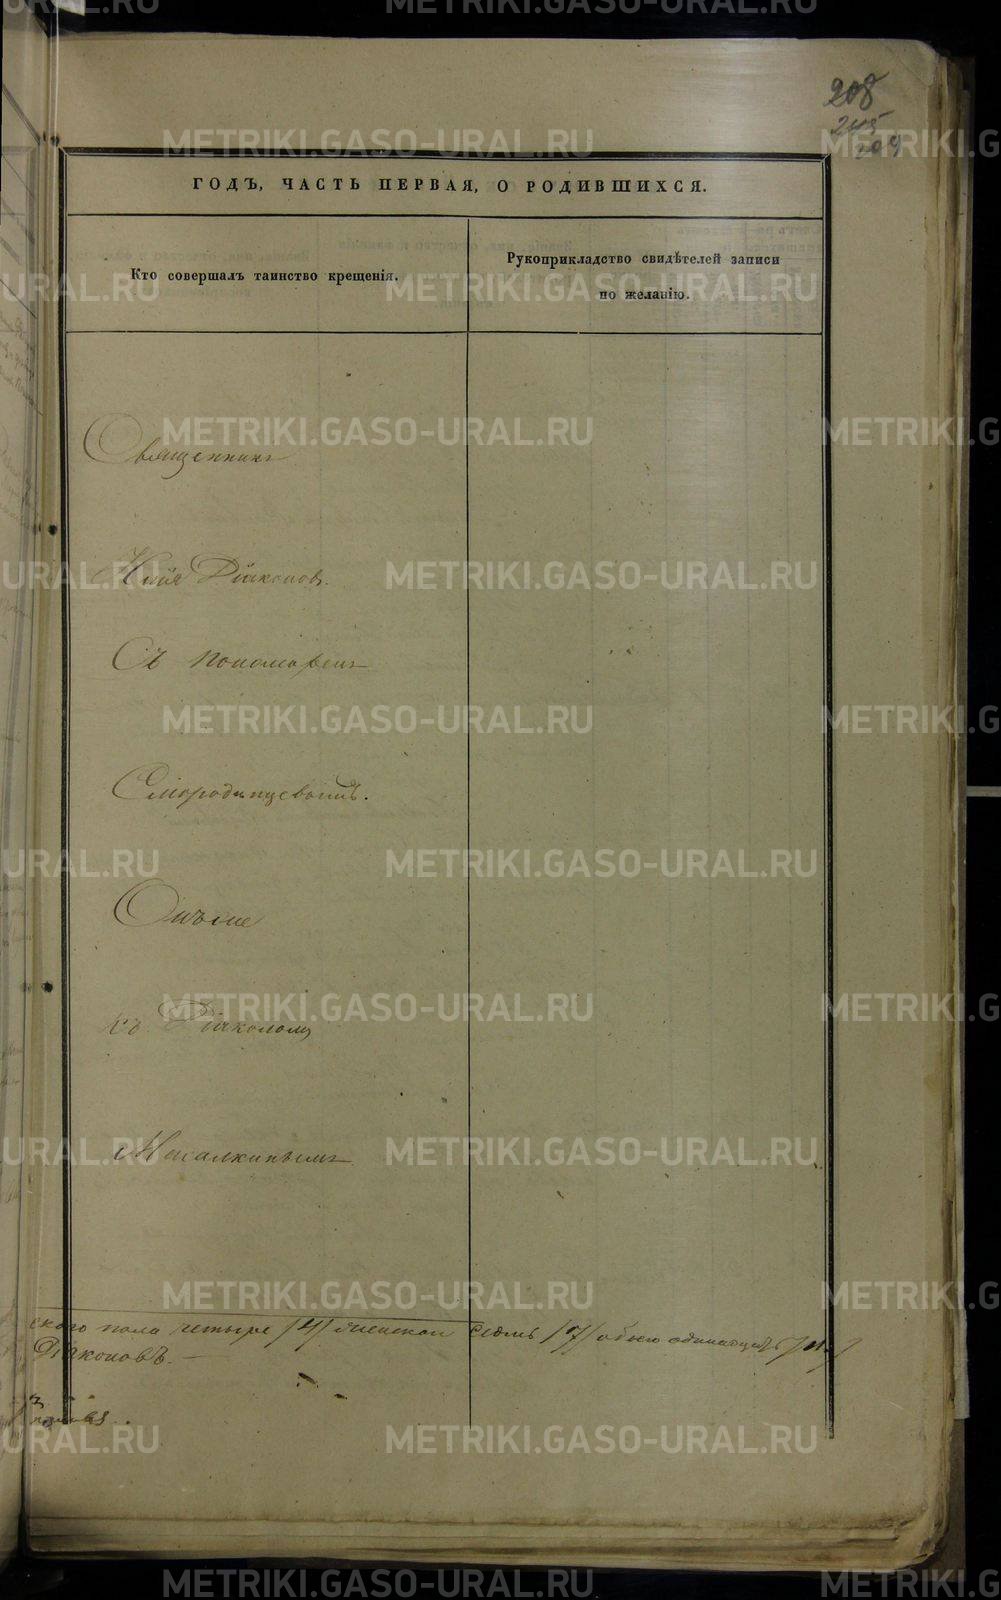 208
205
209
ГОДЪ, ЧАСТЬ ПЕРВАЯ, О РОДИВШИХСЯ.
Кто совершалъ таинство крещенія.
Рукоприкладство свидѣтелей записи
по желанію.
Священникъ
Илія Діаконовъ.
Съ пономаремъ
Смородинцевымъ.
Онъ же
съ Діакономъ
Масалкинымъ
ского пола четыре /4/ женскаго седмь /7/ обоего одинадцать /11/
Діаконовъ.
METRIKI.GASO-URAL.RU